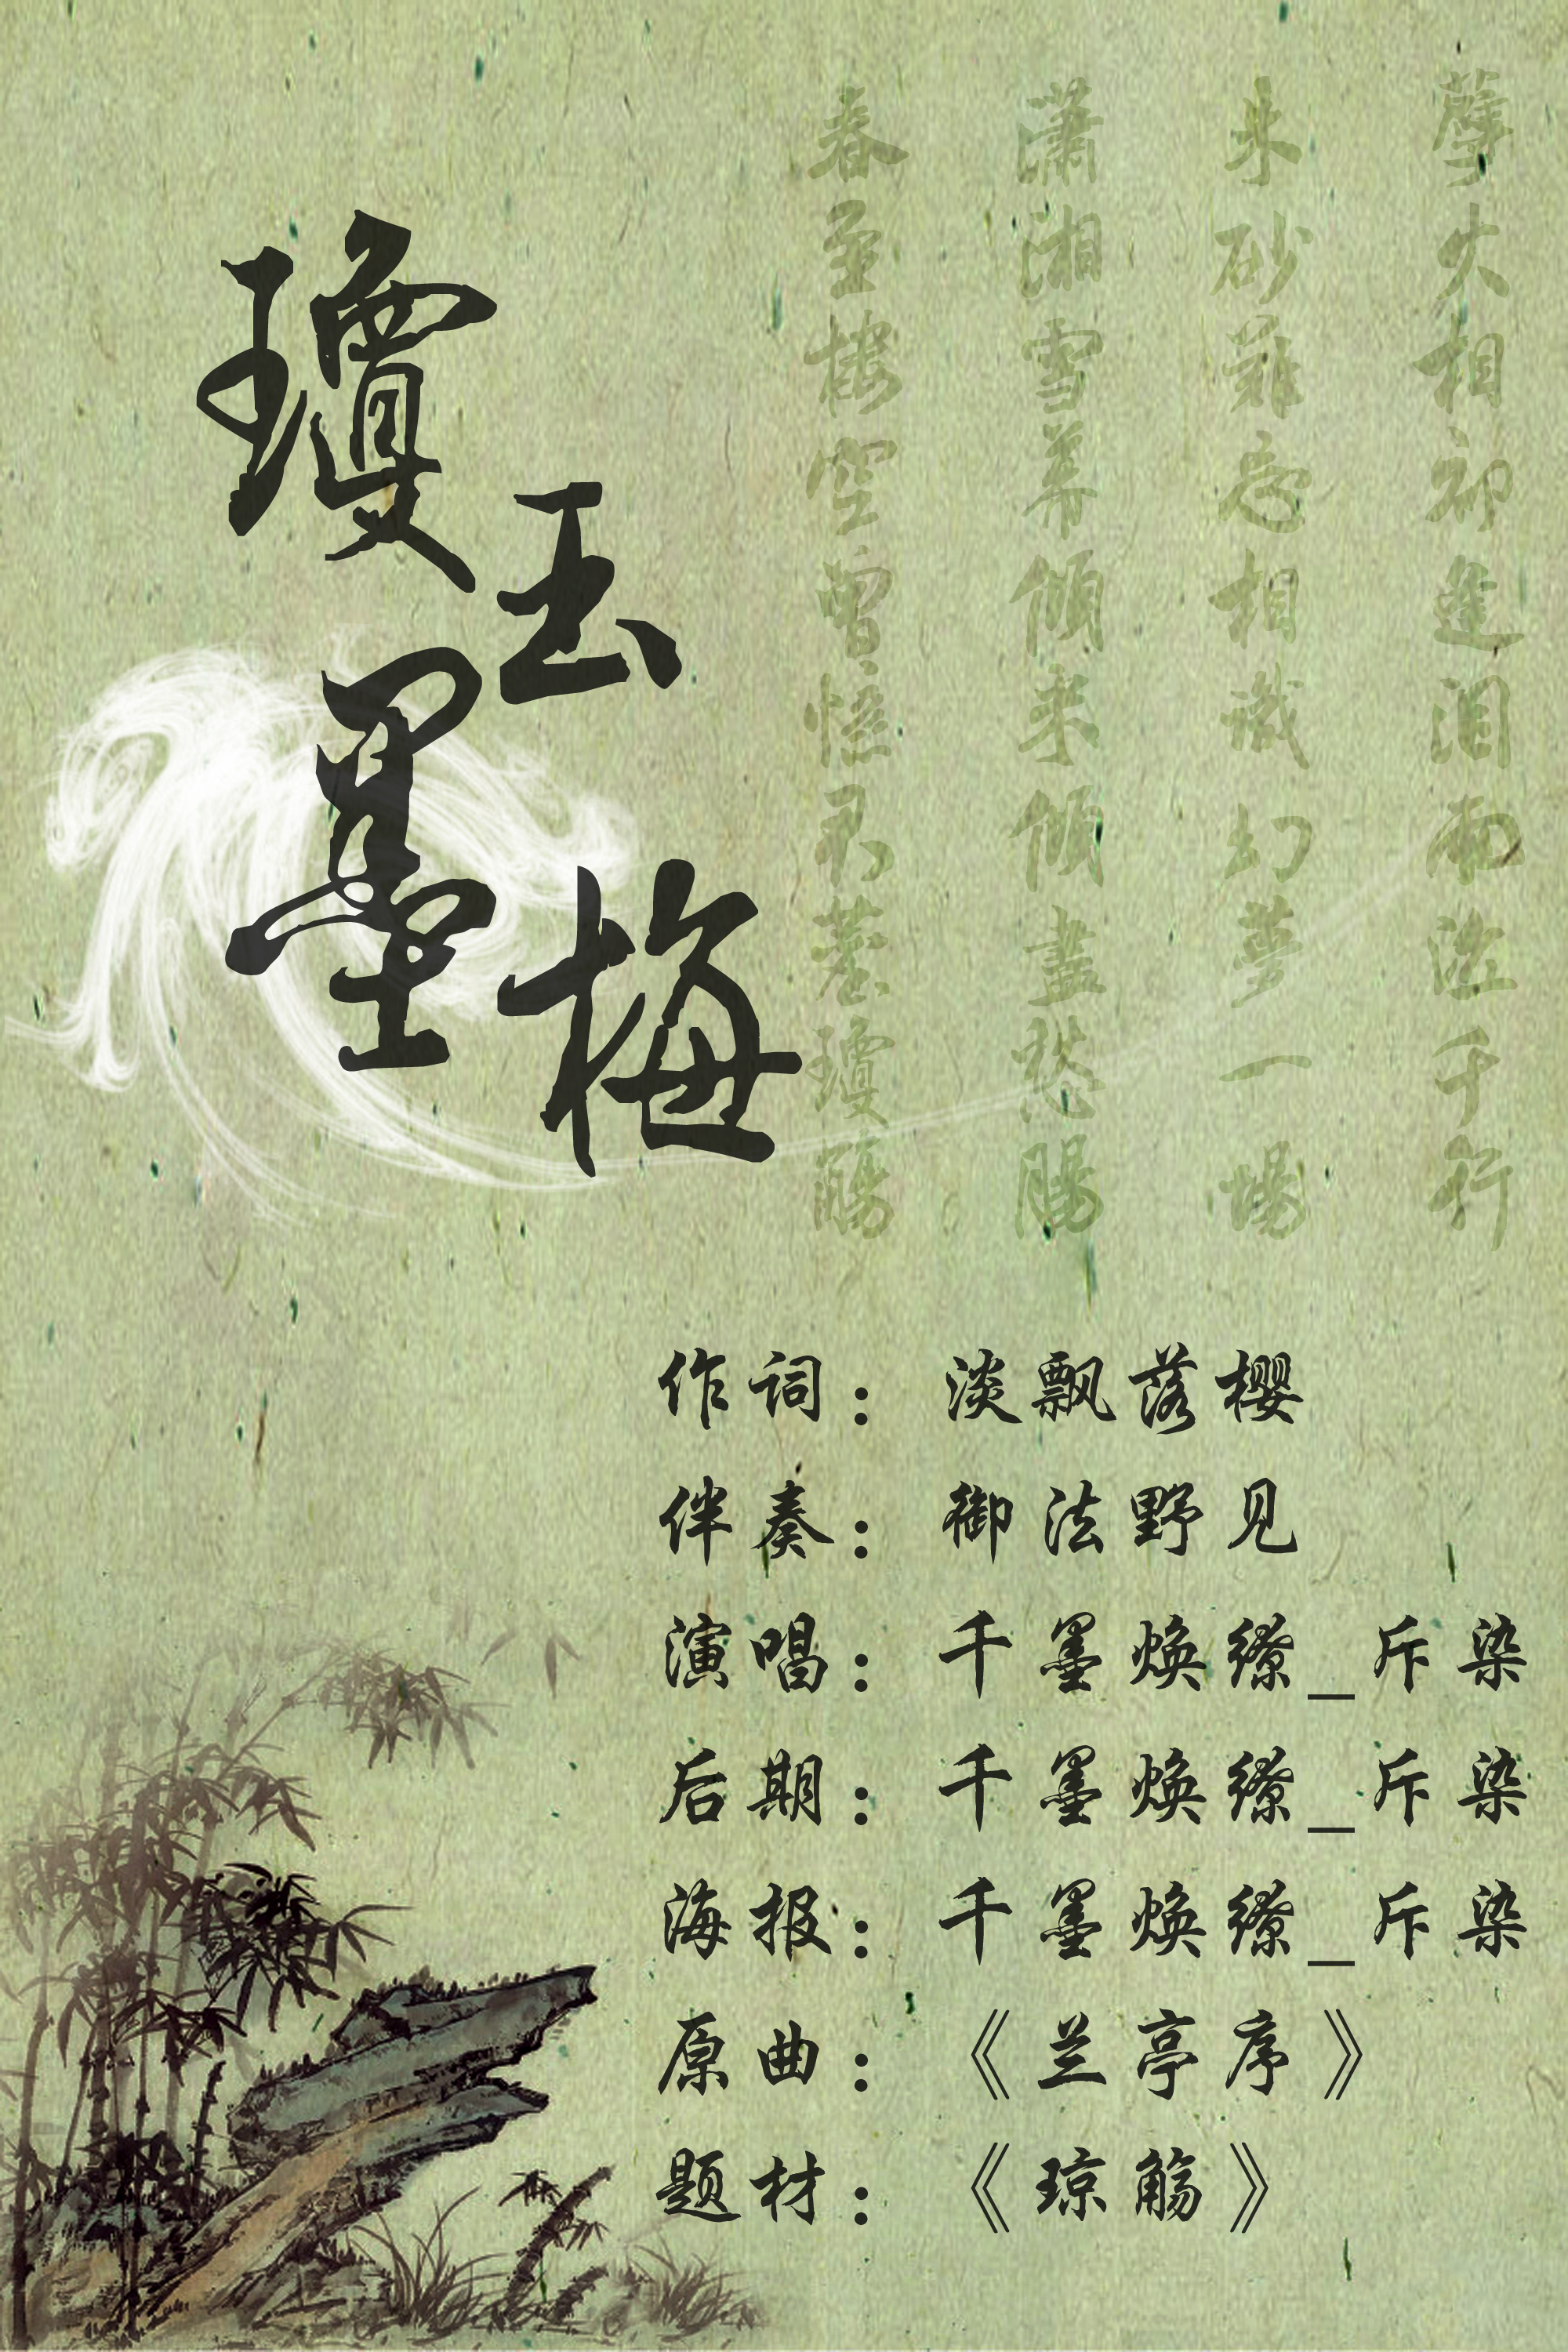 瓊玉墨梅
孽火相逢泪雨千行
朱砂難忘相識幻夢一場
瀟湘雪幕傾来傾盡愁腸
春至樓空曾憶君瓊觴
作词：淡飘落樱
伴奏：御法野见
演唱：千墨焕缭_斥染
后期：千墨焕缭_斥染
海报：千墨焕缭_斥染
原曲：《兰亭序》
题材：《琼觞》